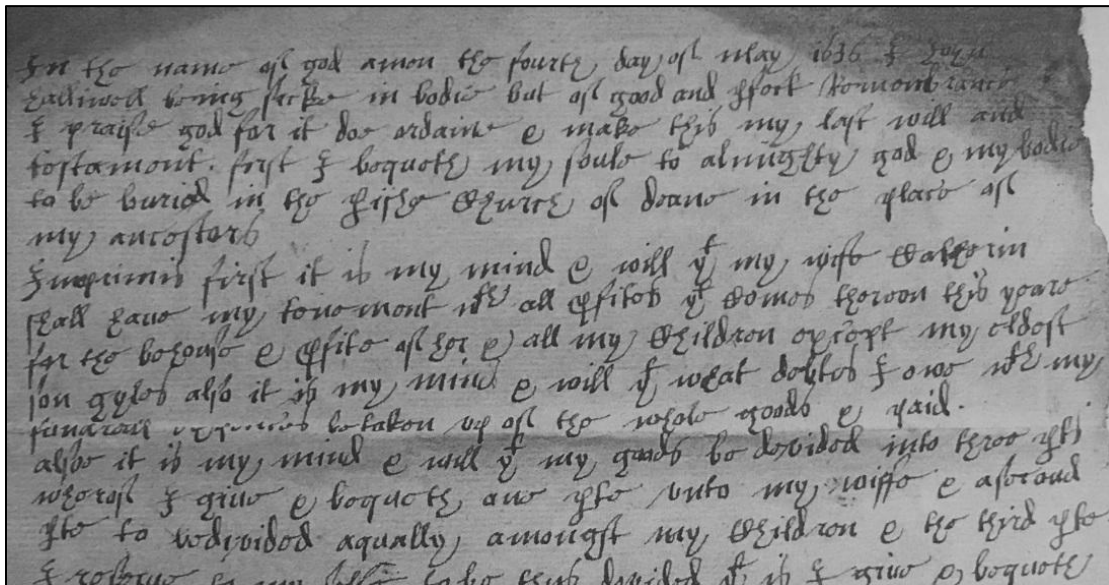 In the name of god amen the fourth day of may 1636 I John
Halliwell being sicke in bodie but of good and pfect Remembrance
I praise god for it doe ordaine & make this my last will and
testament. first I bequeth my soule to almighty god & my bodie
to be buried in the pishe Church of deane in the place of
my ancesters
Imprimis first it is my mind & will yt my wife Catherin
shall have my tenement wth all pfites yt Comes thereon this yeare
for the behoufe & pfite of her & all my Children except my eldest
son gyles also it is my mind & will yt what debtes I owe wth my
funarall be taken up of the whole goods & paid.
alsoe it is my mind & will yt my goods be devided into three pts
wherof I give & bequeth one pte unto my wiffe & a second
pte to be devided aqually amongst my Children & the third pte
I reserve to my selfe to be thus devided yt is I give & bequeth